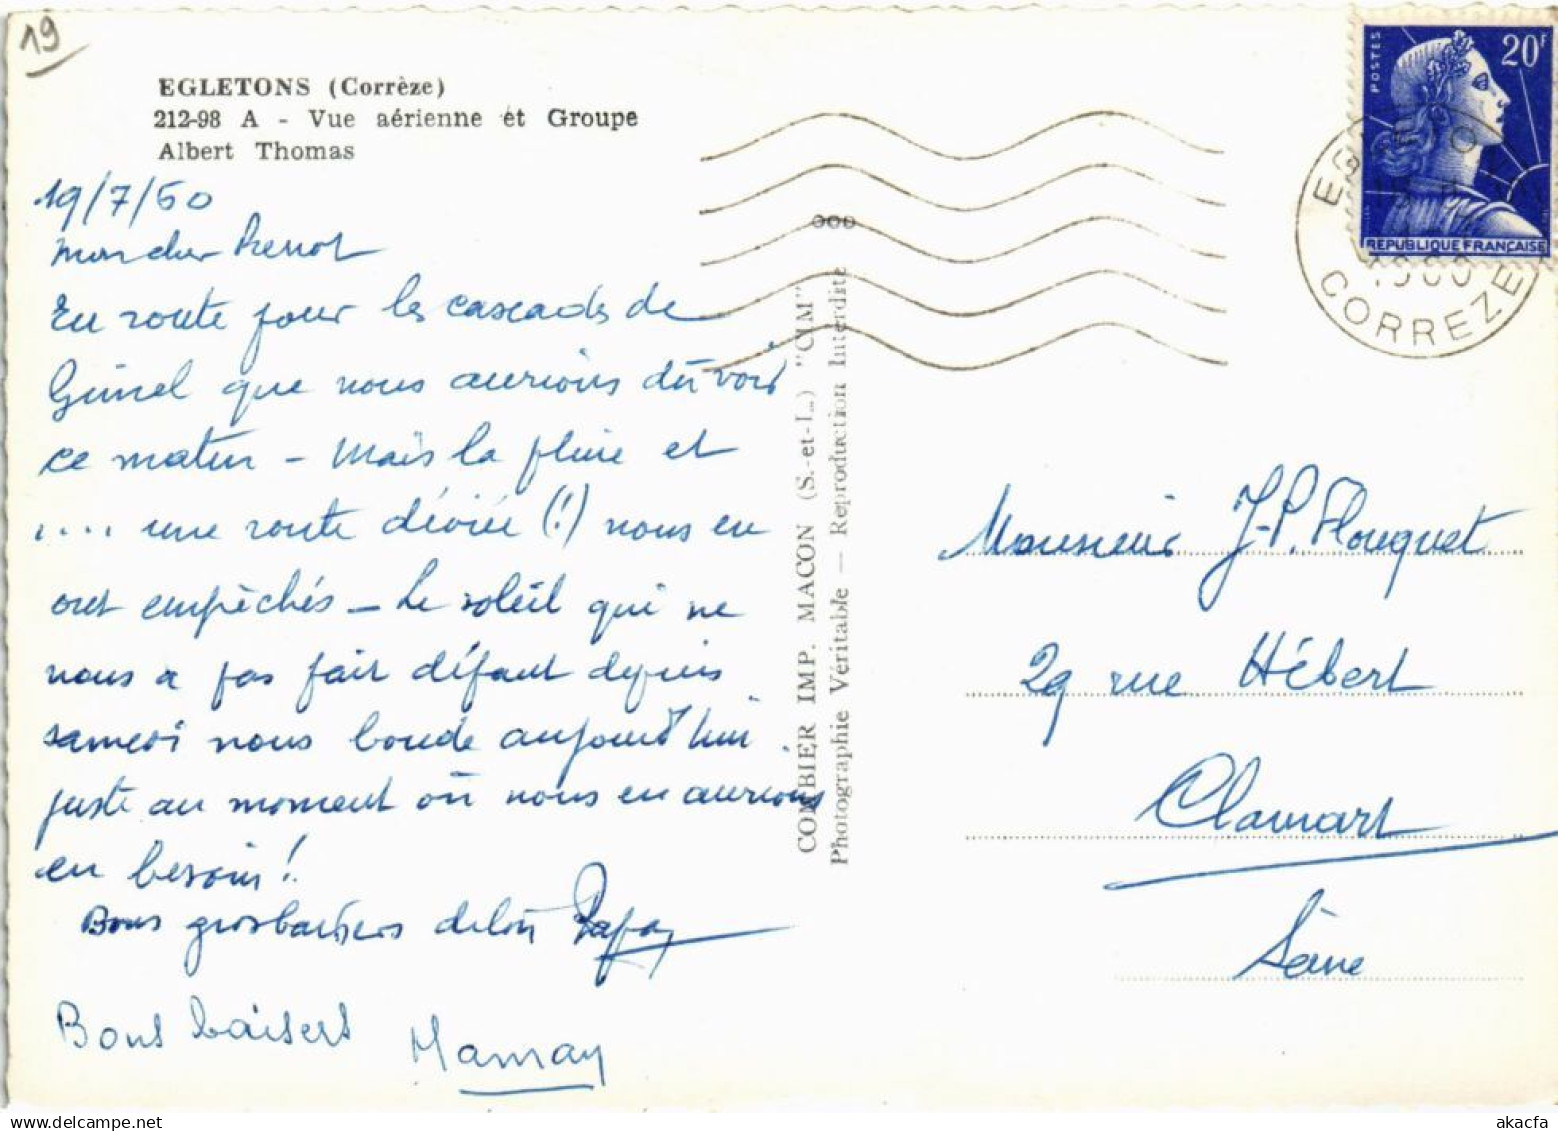 19
EGLETONS (Corrèze)
212-98 A - Vue aérienne et Groupe
Albert Thomas
19/7/60
Mon cher Pierrot
En route pour les cascades de
Gimel que nous aurions dû voir
ce matin - Mais la pluie et
.... une route déviée (!) nous en
ont empêchés - Le soleil qui ne
nous a pas fait défaut depuis
samedi nous boude aujourd'hui
juste au moment où nous en aurions
en besoin !
Bons gros baisers de ton Papa
Bons baisers Maman
COMBIER IMP. MACON (S.-et-L.) "CIM"
Photographie Véritable — Reproduction Interdite
POSTES
20F
REPUBLIQUE FRANÇAISE
CORREZE
Monsieur J-P. Flouquet
29 rue Hébert
Clamart
Seine
akacfa